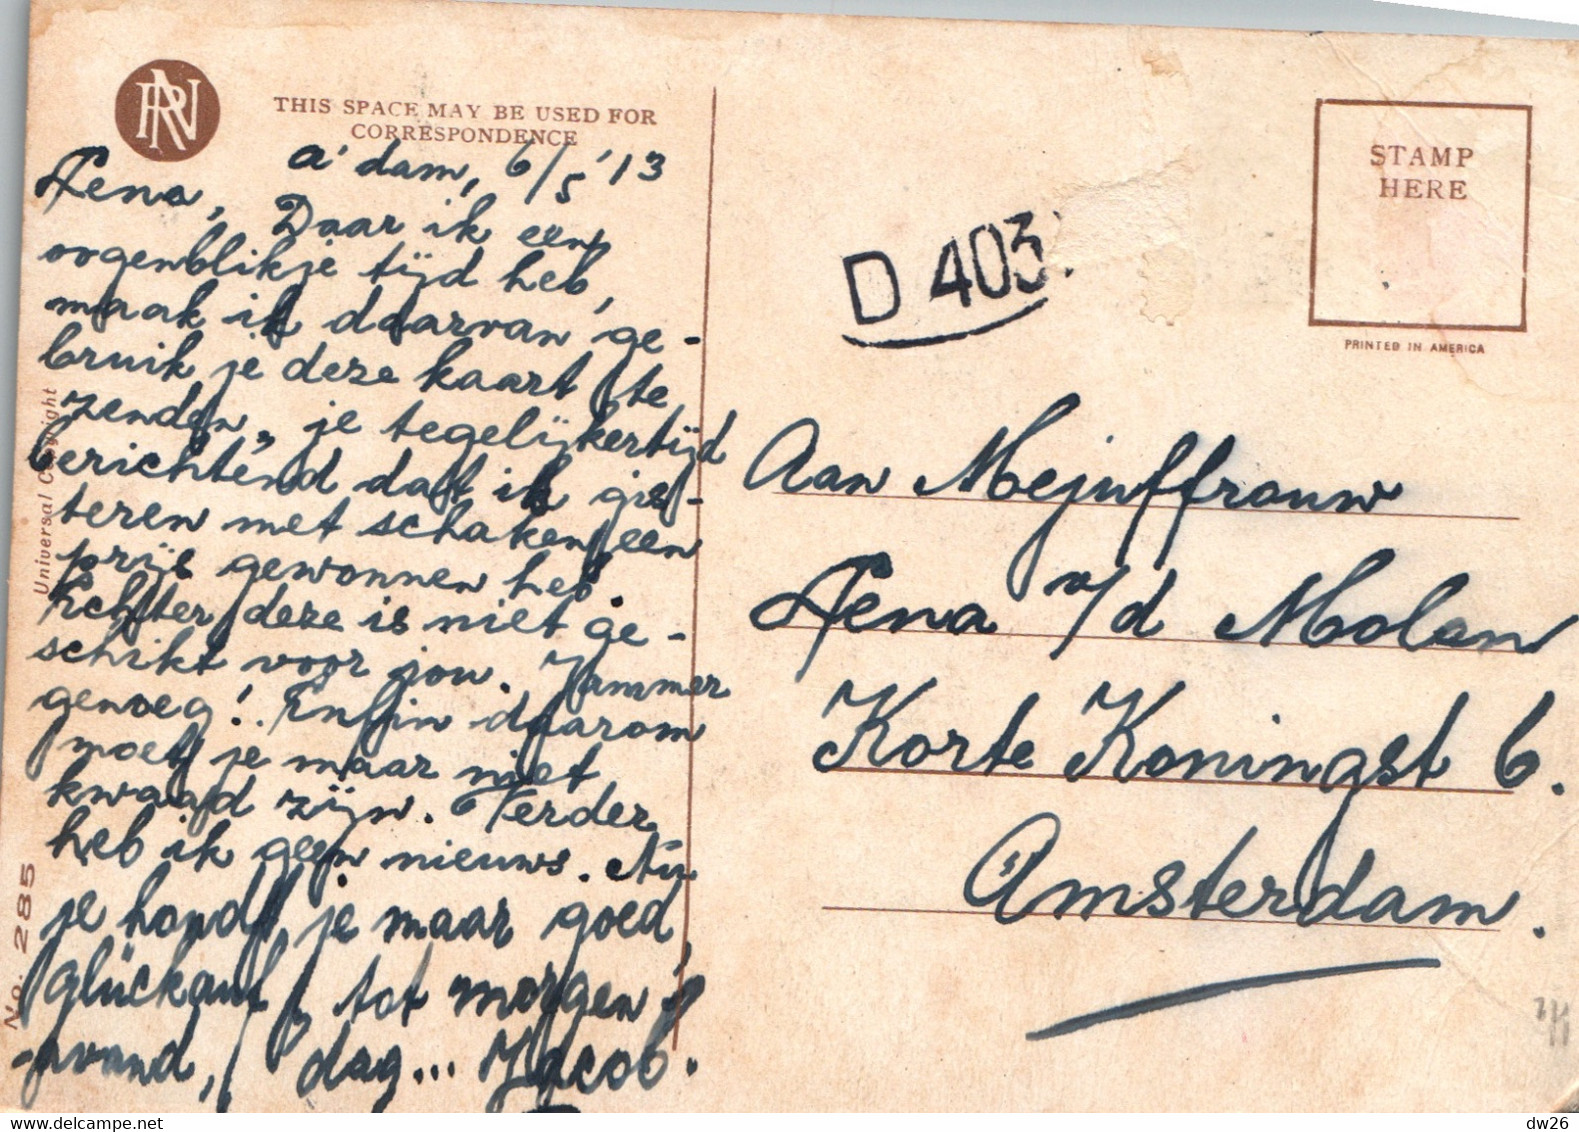 THIS SPACE MAY BE USED FOR
CORRESPONDENCE
a'dam, 6/5 '13
Lena, Daar ik een
oogenblikje tijd heb,
maak ik daarvan ge-
bruik je deze kaart te
zenden, je tegelijkertijd
berichtend dat ik gis-
teren met schaken een
prijs gewonnen heb.
Echter deze is niet ge-
schikt voor jou. Jammer
genoeg! Enfin daarom
moet je maar niet
kwaad zijn. Verder
heb ik geen nieuws. Nu
je houdt je maar goed,
glückauf, tot morgen
avond, dag... Jacob.
Universal Copyright
No. 285
D 403
STAMP
HERE
PRINTED IN AMERICA
Aan Mejuffrouw
Lena v/d Molen
Korte Koningst 6.
Amsterdam.
delcampe.net
dw26